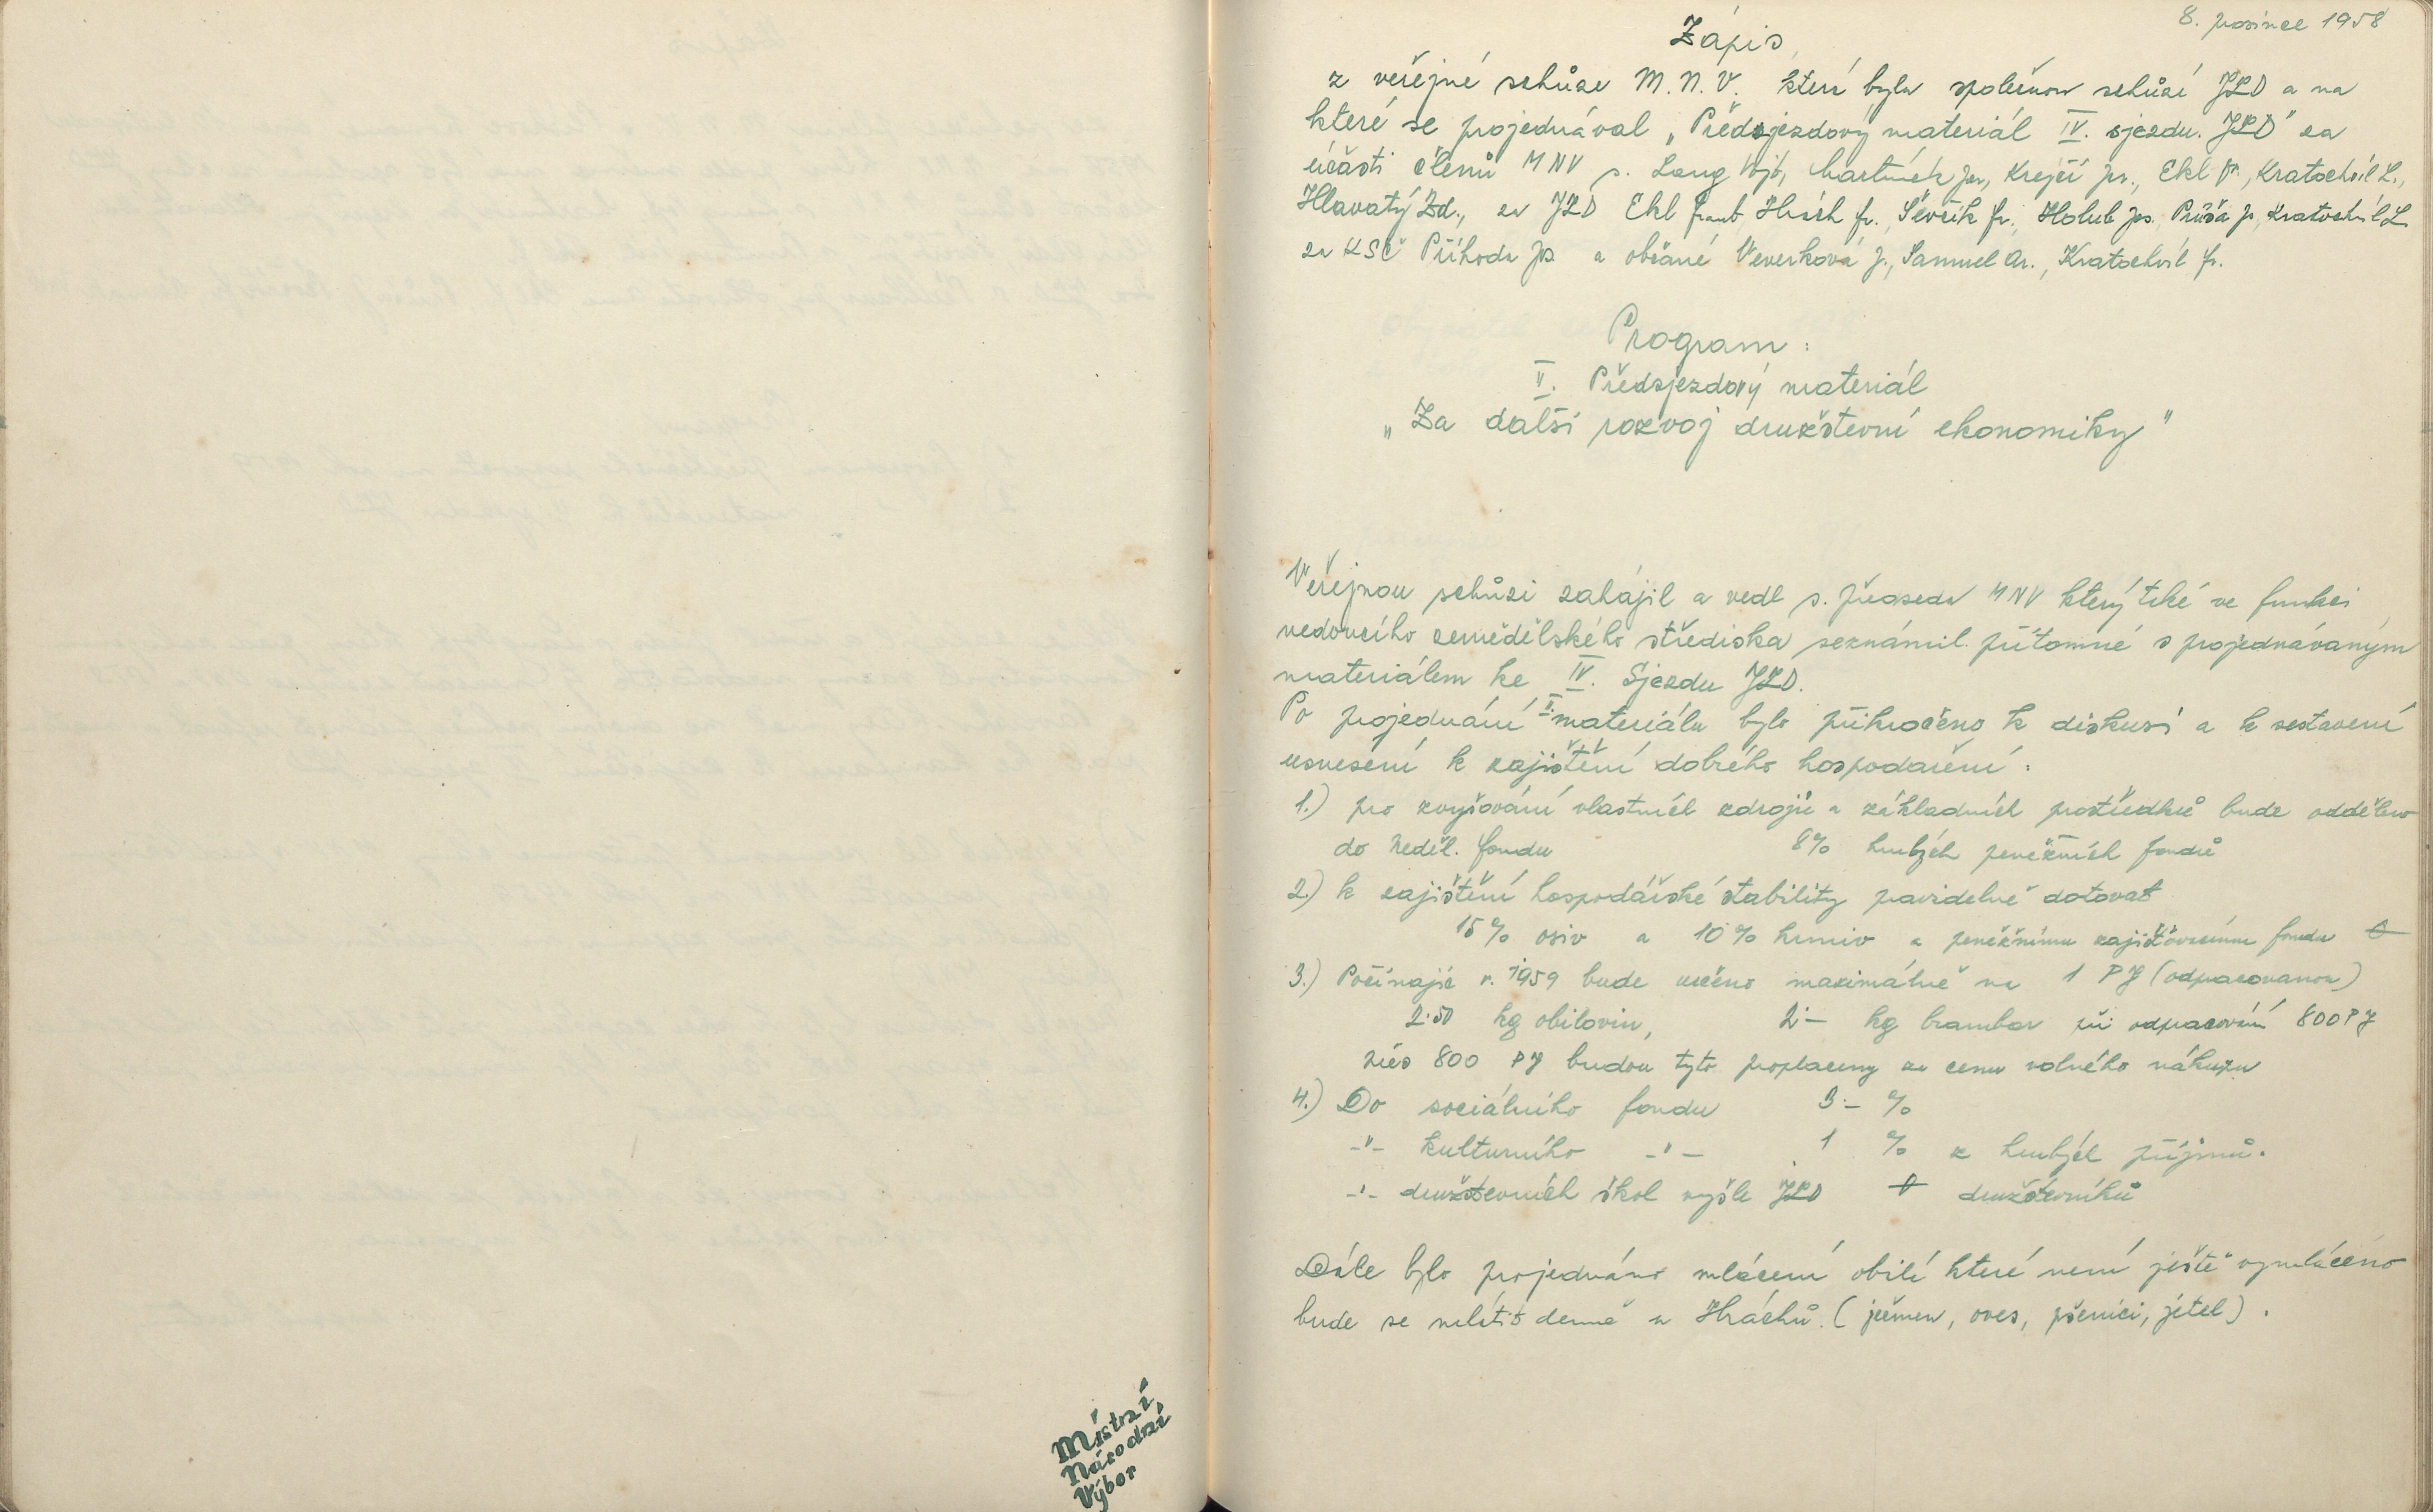 Místní
Národní
Výbor
8. prosince 1958
Zápis
z veřejné schůze M.N.V. která byla společnou schůzí JZD a na
které se projednával „Předsjezdový materiál IV. sjezdu. JZD" za
účasti členů MNV s. Lang Vojt, Martínek Jar, Krejčí Jar., Ekl Fr., Kratochvíl L.,
Hlavatý Zd., za JZD Ekl Frant Hrách fr., Ševčík fr., Holub Jos. Průša J, Kratochvíl L.
za KSČ Příhoda Jos a občané Veverková J., Samuel Ar., Kratochvíl fr.
Program:
II. Předsjezdový materiál
„Za další rozvoj družstevní ekonomiky"
Veřejnou schůzi zahájil a vedl s. předseda MNV který též ve funkci
vedoucího zemědělského střediska seznámil přítomné s projednávaným
materiálem ke IV. Sjezdu JZD.
Po projednání II. materiálu bylo přikročeno k diskusi a k sestavení
usnesení k zajištění dobrého hospodaření:
1.) pro zvyšování vlastních zdrojů a základních prostředků bude odděleno
do neděl. fondu 8% hrubých peněžních fondů
2.) k zajištění hospodářské stability pravidelně dotovat
15% osiv a 10% krmiv a peněžnímu zajišťovacímu fondu 0
3.) Počínajíc r. 1959 bude určeno maximálně na 1 PJ (odpracovanou)
2·50 kg obilovin, 2·– kg brambor při odpracování 800 PJ
více 800 PJ budou tyto proplaceny za cenu volného nákupu
4.) Do sociálního fondu 3·– %
–"– kulturního –"– 1 % z hrubých příjmů.
–"– družstevních škol vyšle JZD 0 družstevníků
Dále bylo projednáno mlácení obilí které není ještě vymláceno
bude se mlátit denně u Hráchů. (ječmen, oves, pšenici, jetel).